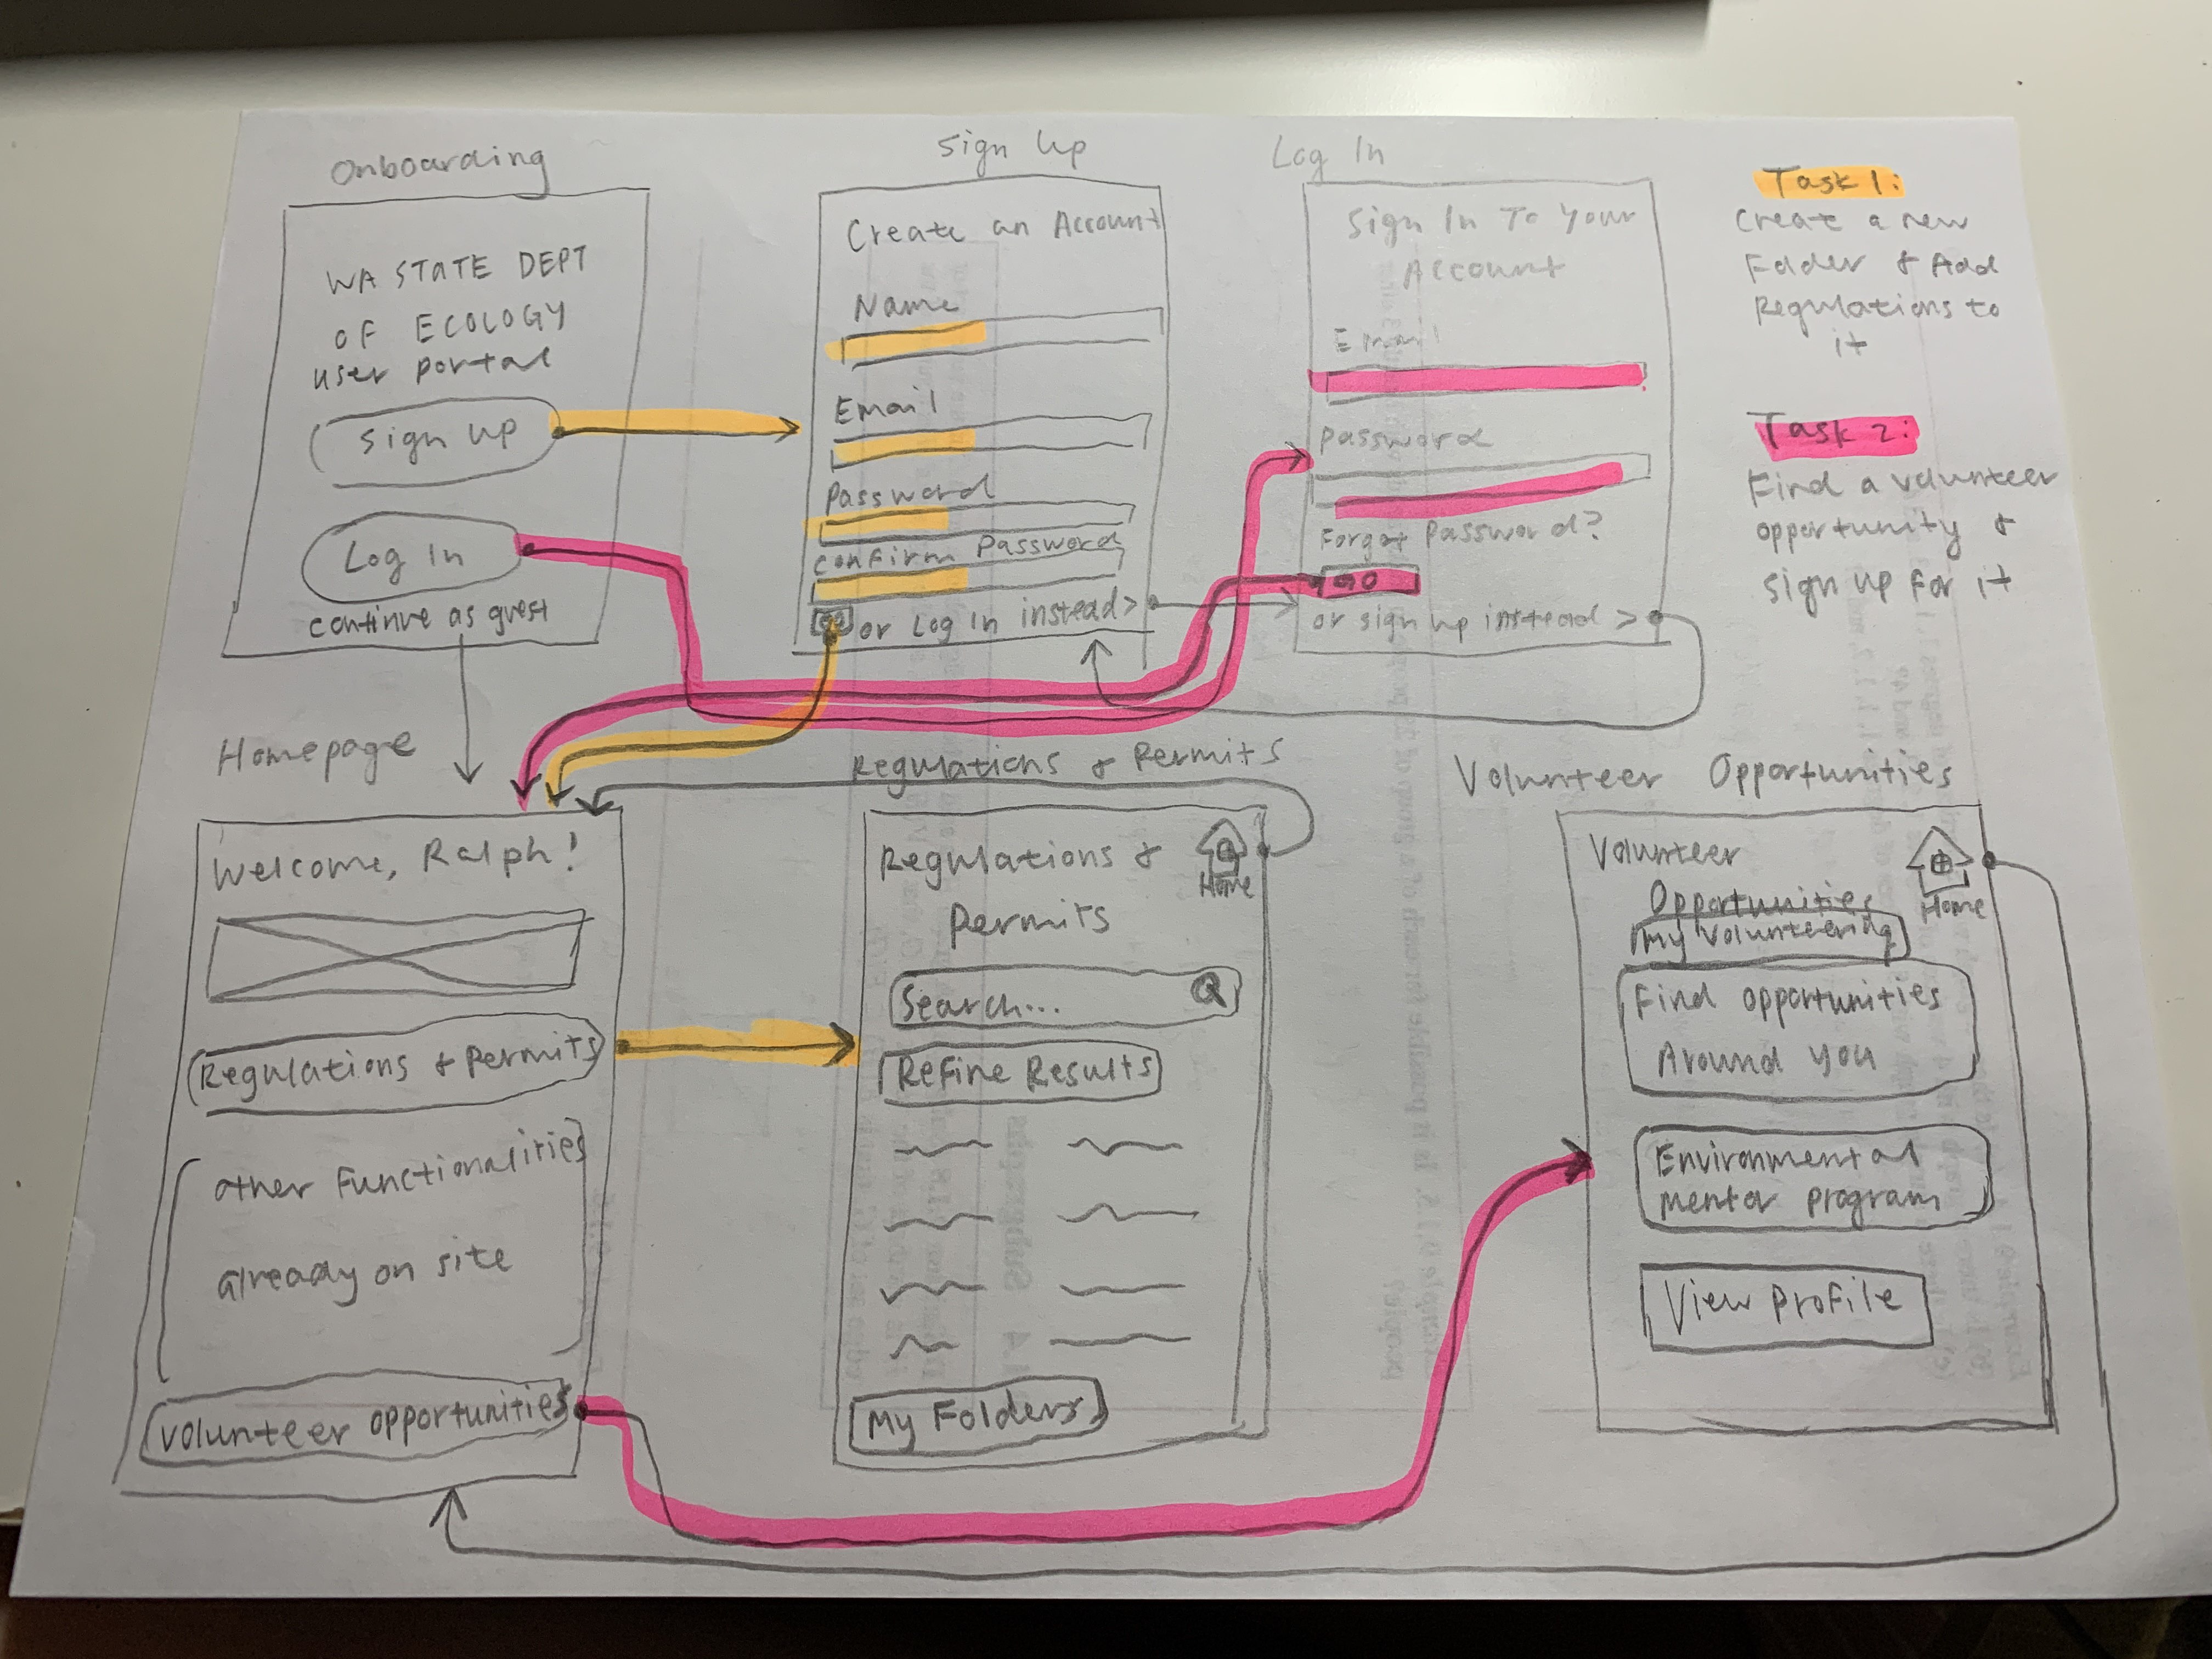 Onboarding
WA STATE DEPT
OF ECOLOGY
user portal
Sign up
Log In
continue as guest
Sign Up
Create an Account
Name
Email
Password
Confirm Password
GO or Log In instead >
Log In
Sign In To Your
Account
Email
Password
Forgot Password?
GO
or sign up instead >
Task 1:
Create a new
Folder & Add
Regulations to
it
Task 2:
Find a volunteer
opportunity &
sign up for it
Homepage
Welcome, Ralph!
Regulations & Permits
other Functionalities
already on site
Volunteer opportunities
Regulations & Permits
Regulations &
Permits
Home
Search...
Refine Results
My Folders
Volunteer Opportunities
Volunteer
Opportunities
Home
My Volunteering
Find opportunities
Around you
Environmental
mentor program
View Profile